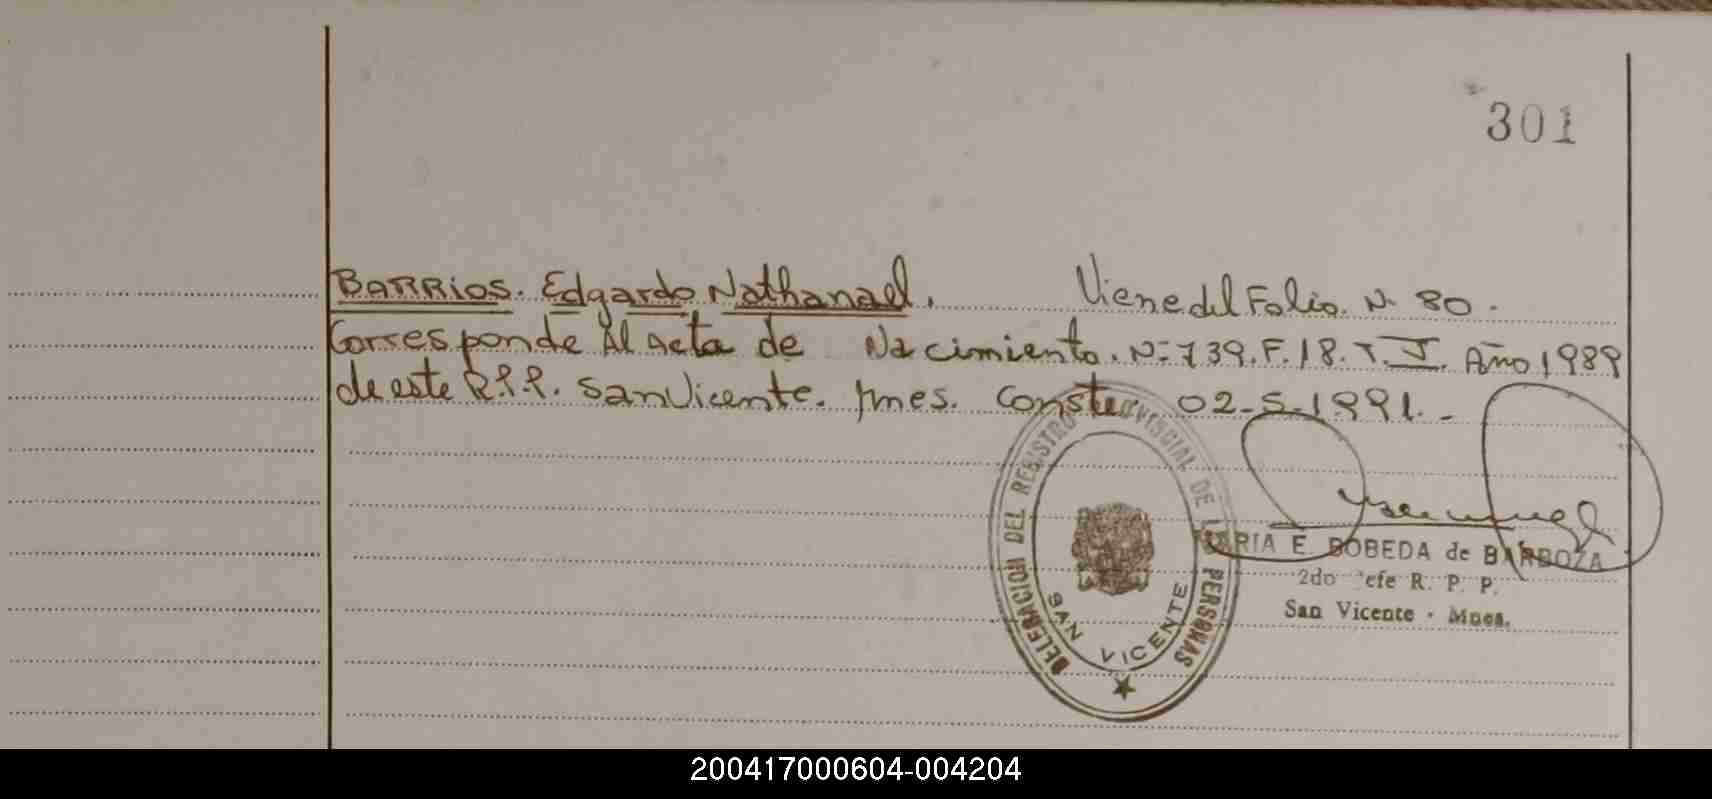 301
BARRIOS. Edgardo Nathanael. Viene del Folio. N. 80.
Corresponde Al Acta de Nacimiento. N= 739. F. 18. T. I. Año 1989
de este R.P.P. San Vicente. Mnes. Conste 02-5-1991.-
DELEGACION DEL REGISTRO PROVINCIAL DE LAS PERSONAS
SAN VICENTE
MARIA E. BOBEDA de BARBOZA
2do Jefe R. P. P.
San Vicente - Mnes.
200417000604-004204